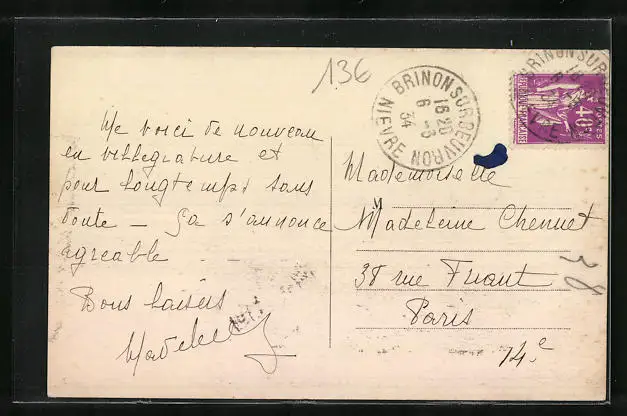 136
BRINON SUR BEUVRON
16 20
6 - 8
34
NIEVRE
40c
POSTES
REPUBLIQUE FRANÇAISE
Me voici de nouveau
en villegiature et
pour longtemps sans
doute — Ça s'annonce
agreable . .
Bons baisers
Mademoiselle
Madeleine Chennet
38 rue Friant
Paris
14.e
38